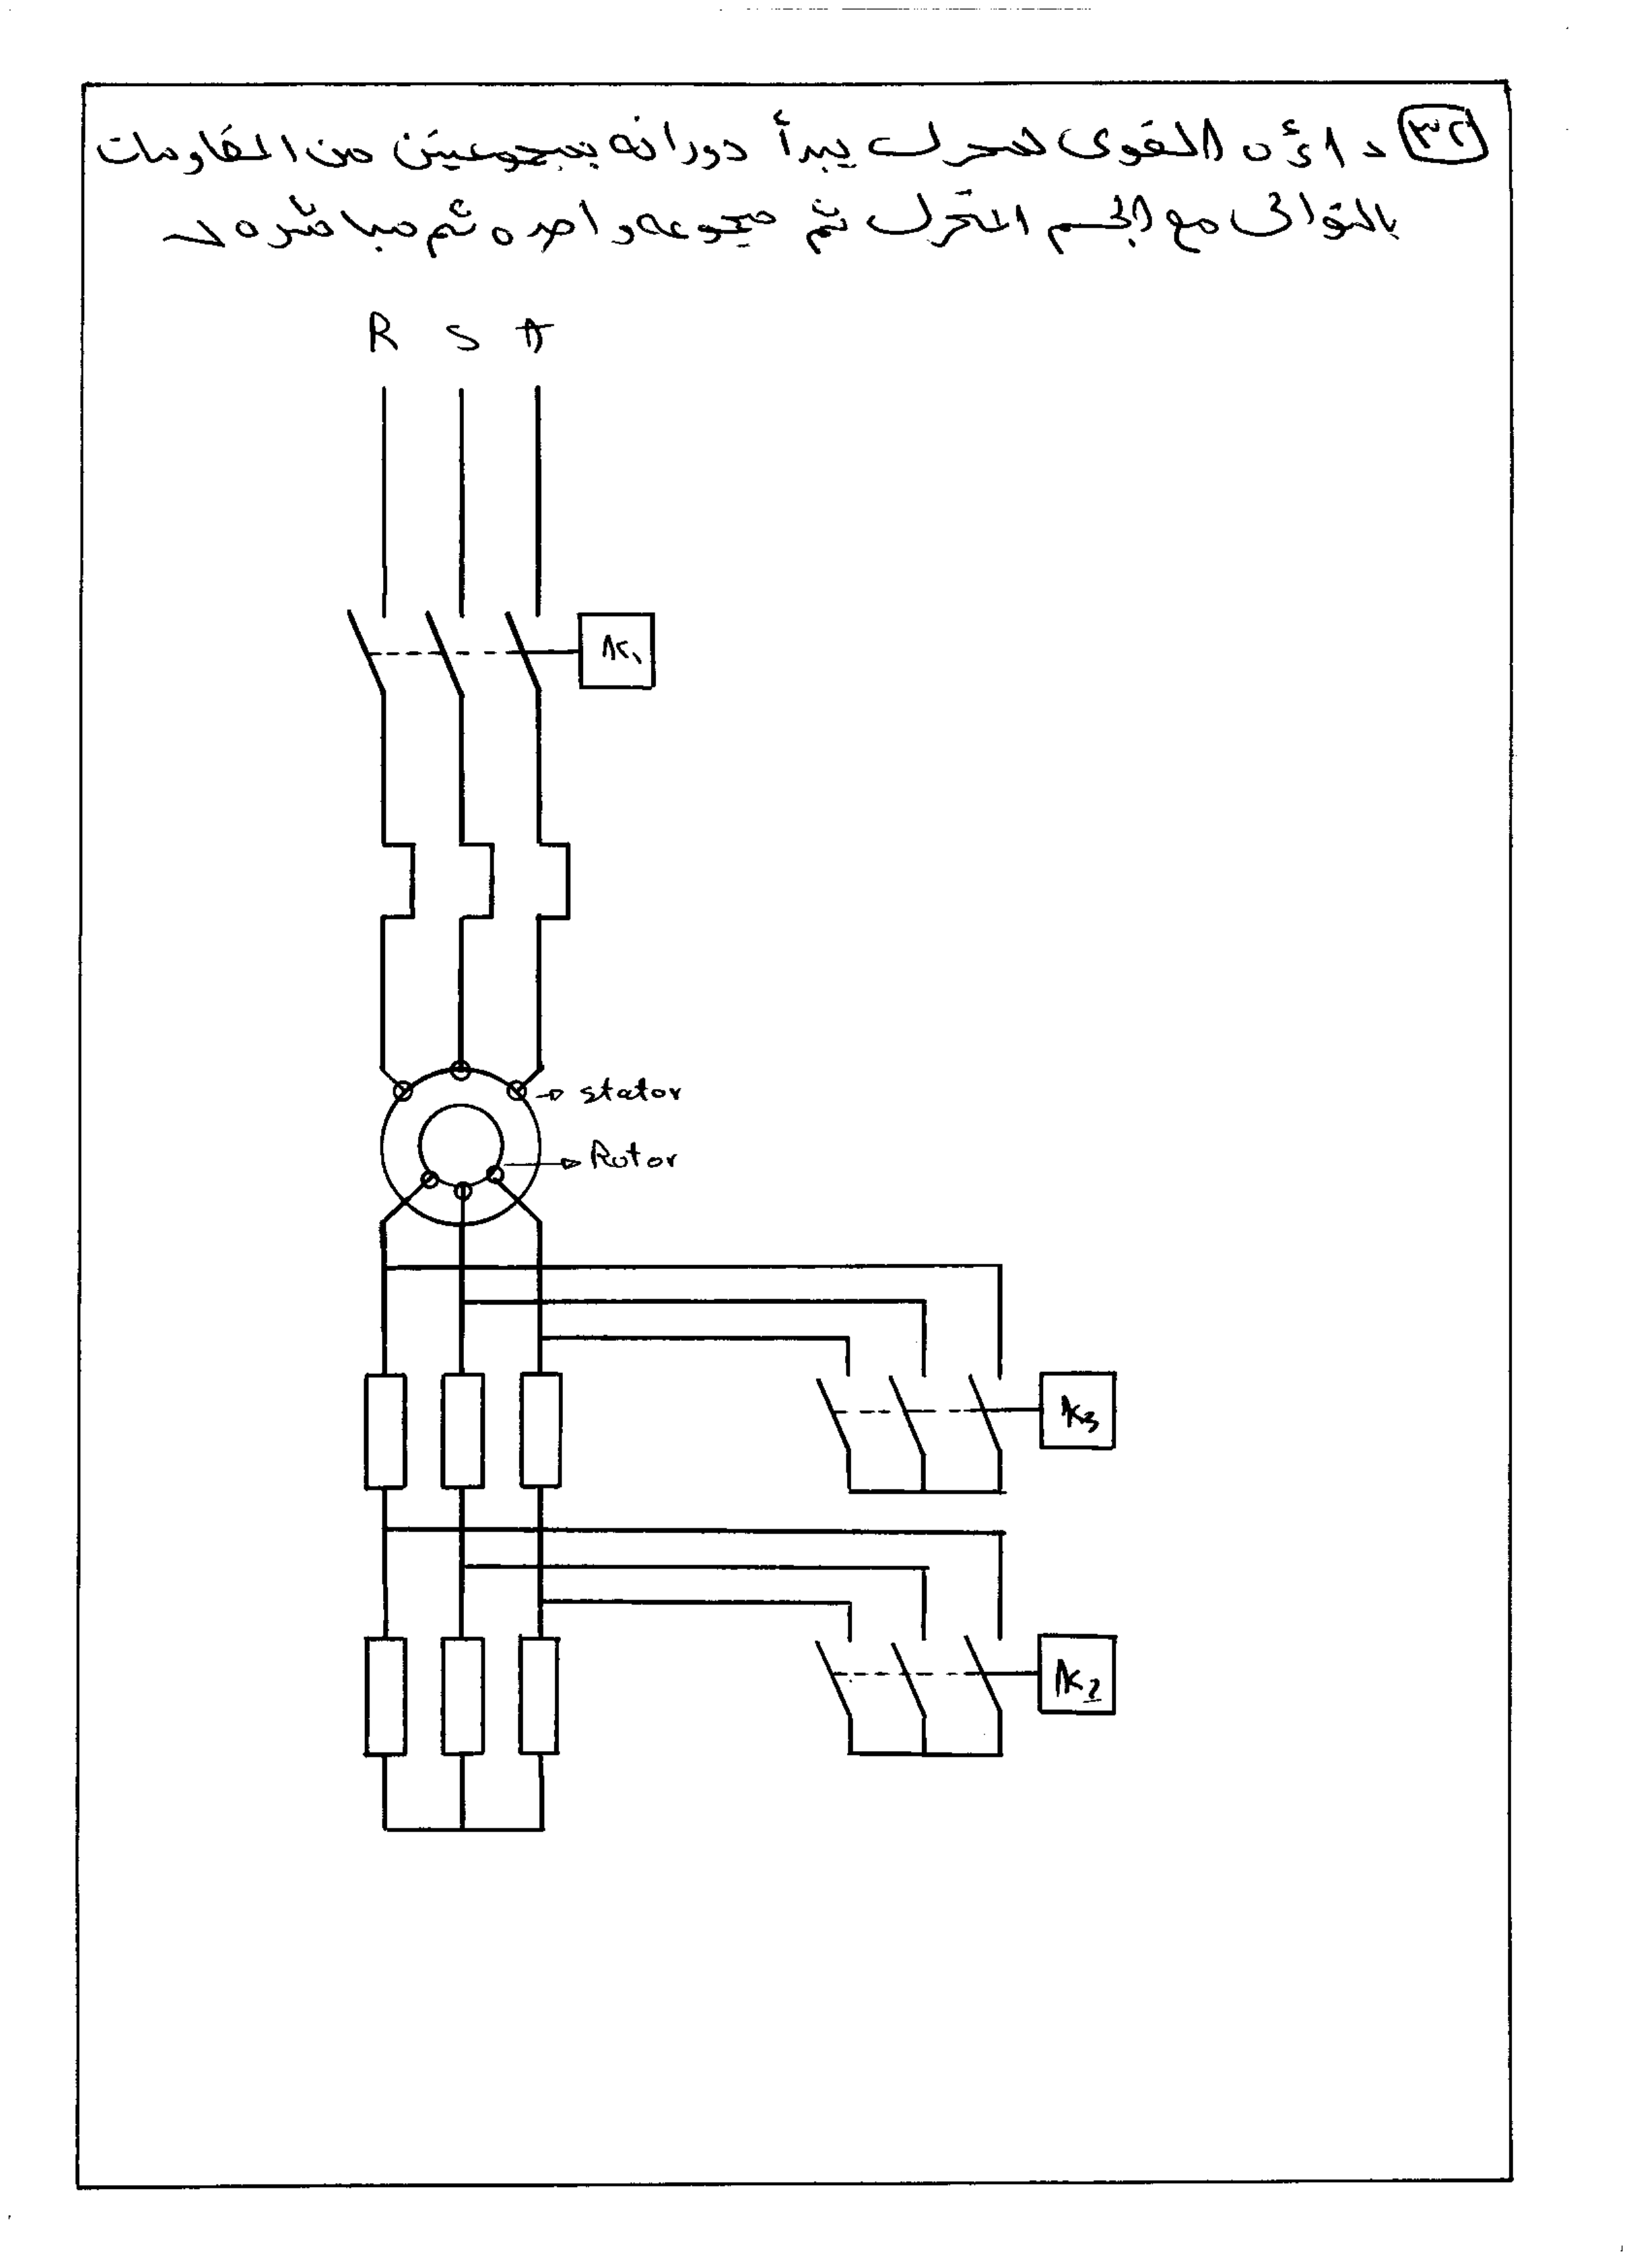 ٣٢ دائرة القوى لمحرك يبدأ دورانه بمجموعتين من المقاومات
بالتوالى مع الجسم المتحرك ثم مجموعه واحده ثم مباشره
R S T
K1
stator
Rotor
K3
K2